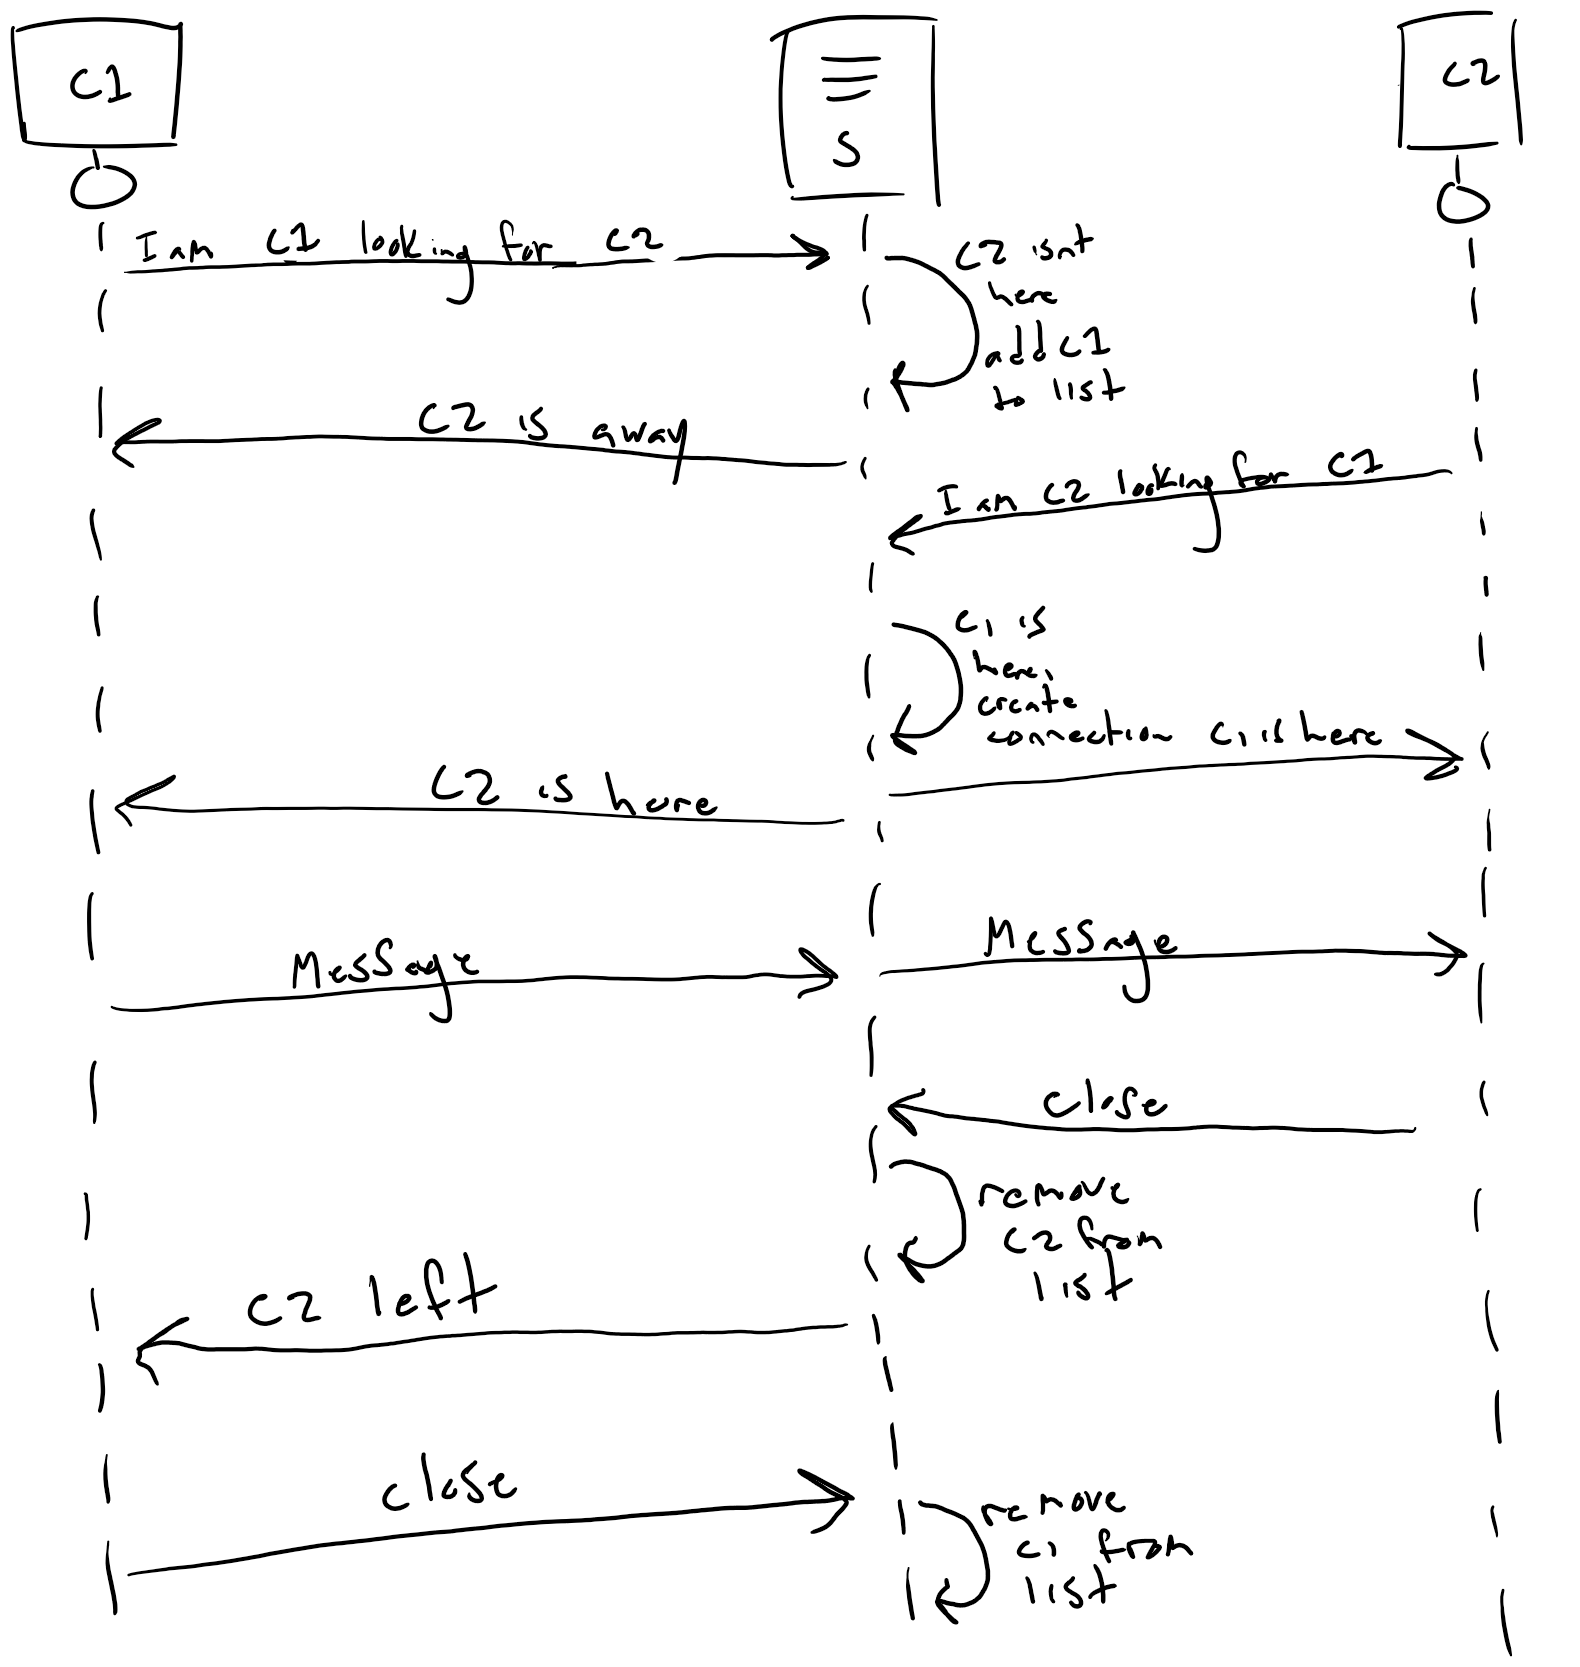 C1
S
C2
I am C1 looking for C2
C2 isnt
here
add C1
to list
C2 is away
I am C2 looking for C1
C1 is
here,
create
connection
C1 is here
C2 is here
Message
Message
close
remove
C2 from
list
C2 left
close
remove
C1 from
list